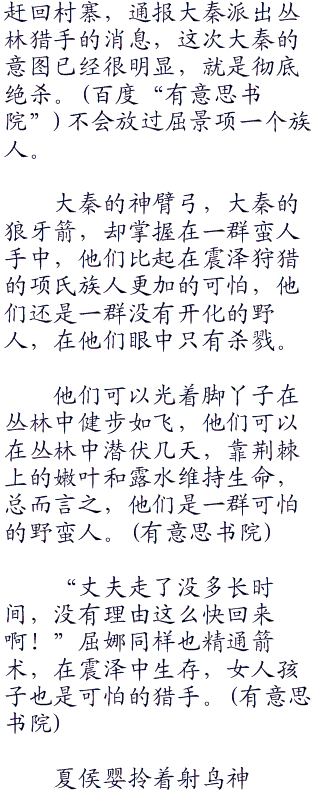 赶回村寨，通报大秦派出丛
林猎手的消息，这次大秦的
意图已经很明显，就是彻底
绝杀。(百度“有意思书
院”)不会放过屈景项一个族
人。
大秦的神臂弓，大秦的
狼牙箭，却掌握在一群蛮人
手中，他们比起在震泽狩猎
的项氏族人更加的可怕，他
们还是一群没有开化的野
人，在他们眼中只有杀戮。
他们可以光着脚丫子在
丛林中健步如飞，他们可以
在丛林中潜伏几天，靠荆棘
上的嫩叶和露水维持生命，
总而言之，他们是一群可怕
的野蛮人。(有意思书院)
“丈夫走了没多长时
间，没有理由这么快回来
啊！”屈娜同样也精通箭
术，在震泽中生存，女人孩
子也是可怕的猎手。(有意思
书院)
夏侯婴拎着射鸟神